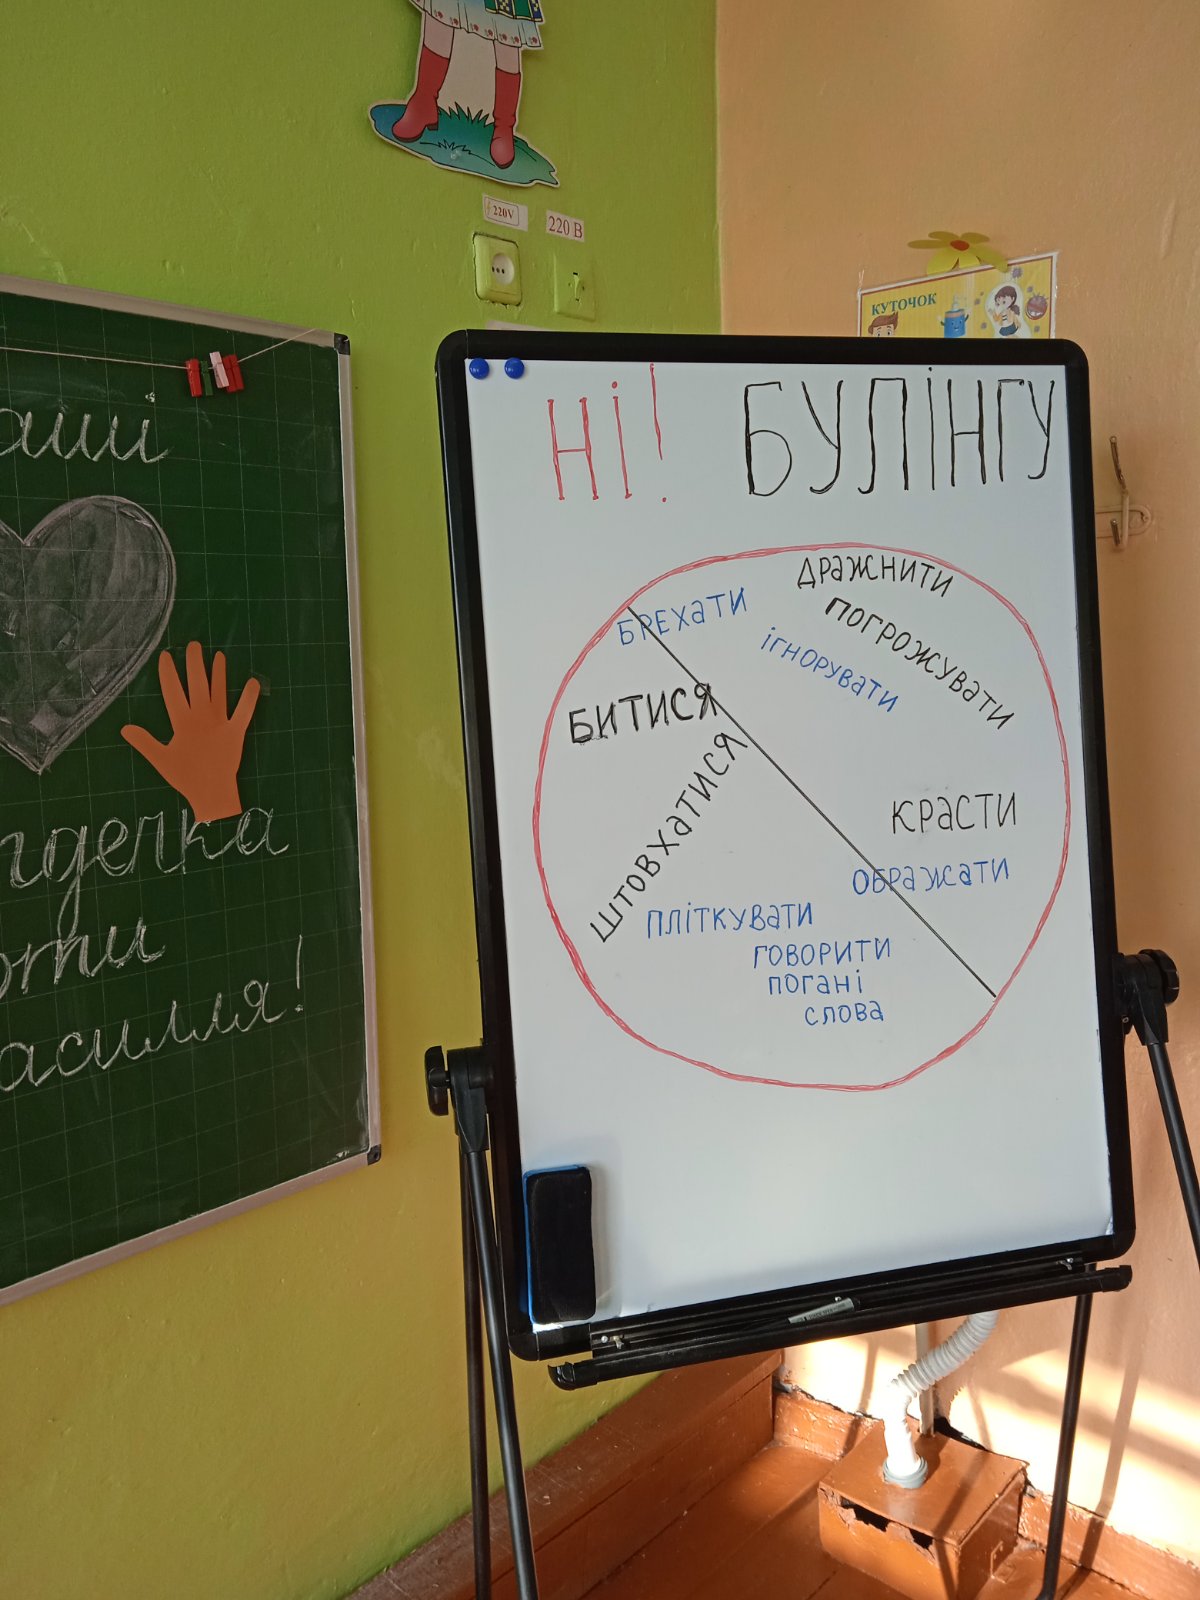 220V
220 В
КУТОЧОК
НІ! БУЛІНГУ
ДРАЖНИТИ
БРЕХАТИ
ПОГРОЖУВАТИ
ІГНОРУВАТИ
БИТИСЯ
ШТОВХАТИСЯ
КРАСТИ
ОБРАЖАТИ
ПЛІТКУВАТИ
ГОВОРИТИ
ПОГАНІ
СЛОВА